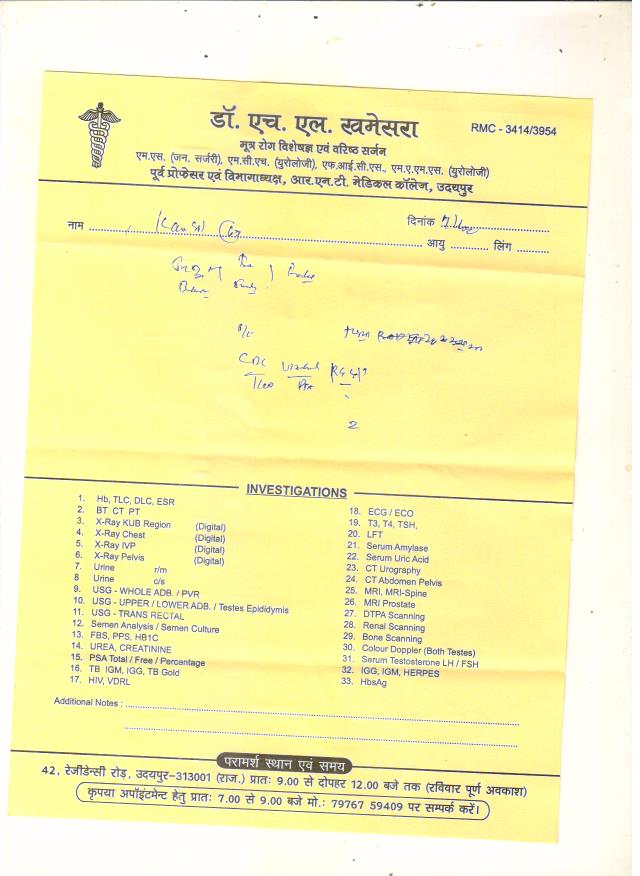 डॉ. एच. एल. खमेसरा
RMC - 3414/3954
मूत्र रोग विशेषज्ञ एवं वरिष्ठ सर्जन
एम.एस. (जन. सर्जरी), एम.सी.एच. (युरोलोजी), एफ.आई.सी.एस., एम.ए.एम.एस. (युरोलोजी)
पूर्व प्रोफेसर एवं विभागाध्यक्ष, आर.एन.टी. मेडिकल कॉलेज, उदयपुर
दिनांक
नाम
आयु ............ लिंग ..........
CBC
INVESTIGATIONS
1. Hb, TLC, DLC, ESR
2. BT CT PT
3. X-Ray KUB Region (Digital)
4. X-Ray Chest (Digital)
5. X-Ray IVP (Digital)
6. X-Ray Pelvis (Digital)
7. Urine r/m
8 Urine c/s
9. USG - WHOLE ADB. / PVR
10. USG - UPPER / LOWER ADB. / Testes Epididymis
11. USG - TRANS RECTAL
12. Semen Analysis / Semen Culture
13. FBS, PPS, HB1C
14. UREA, CREATININE
15. PSA Total / Free / Percentage
16. TB IGM, IGG, TB Gold
17. HIV, VDRL
18. ECG / ECO
19. T3, T4, TSH,
20. LFT
21. Serum Amylase
22. Serum Uric Acid
23. CT Urography
24. CT Abdomen Pelvis
25. MRI, MRI-Spine
26. MRI Prostate
27. DTPA Scanning
28. Renal Scanning
29. Bone Scanning
30. Colour Doppler (Both Testes)
31. Serum Testosterone LH / FSH
32. IGG, IGM, HERPES
33. HbsAg
Additional Notes :
परामर्श स्थान एवं समय
42, रेजीडेन्सी रोड़, उदयपुर-313001 (राज.) प्रातः 9.00 से दोपहर 12.00 बजे तक (रविवार पूर्ण अवकाश)
कृपया अपॉइंटमेन्ट हेतु प्रातः 7.00 से 9.00 बजे मो.: 79767 59409 पर सम्पर्क करें।